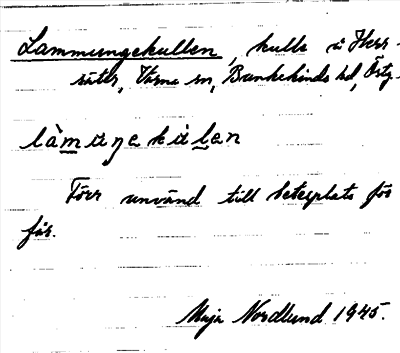 Lammungekullen, kulle i Herr-
säter, Värna sn, Bankekinds hd, Östg.
làmuŋekùlen
Förr använd till betesplats för
får.
Maja Nordlund 1945.